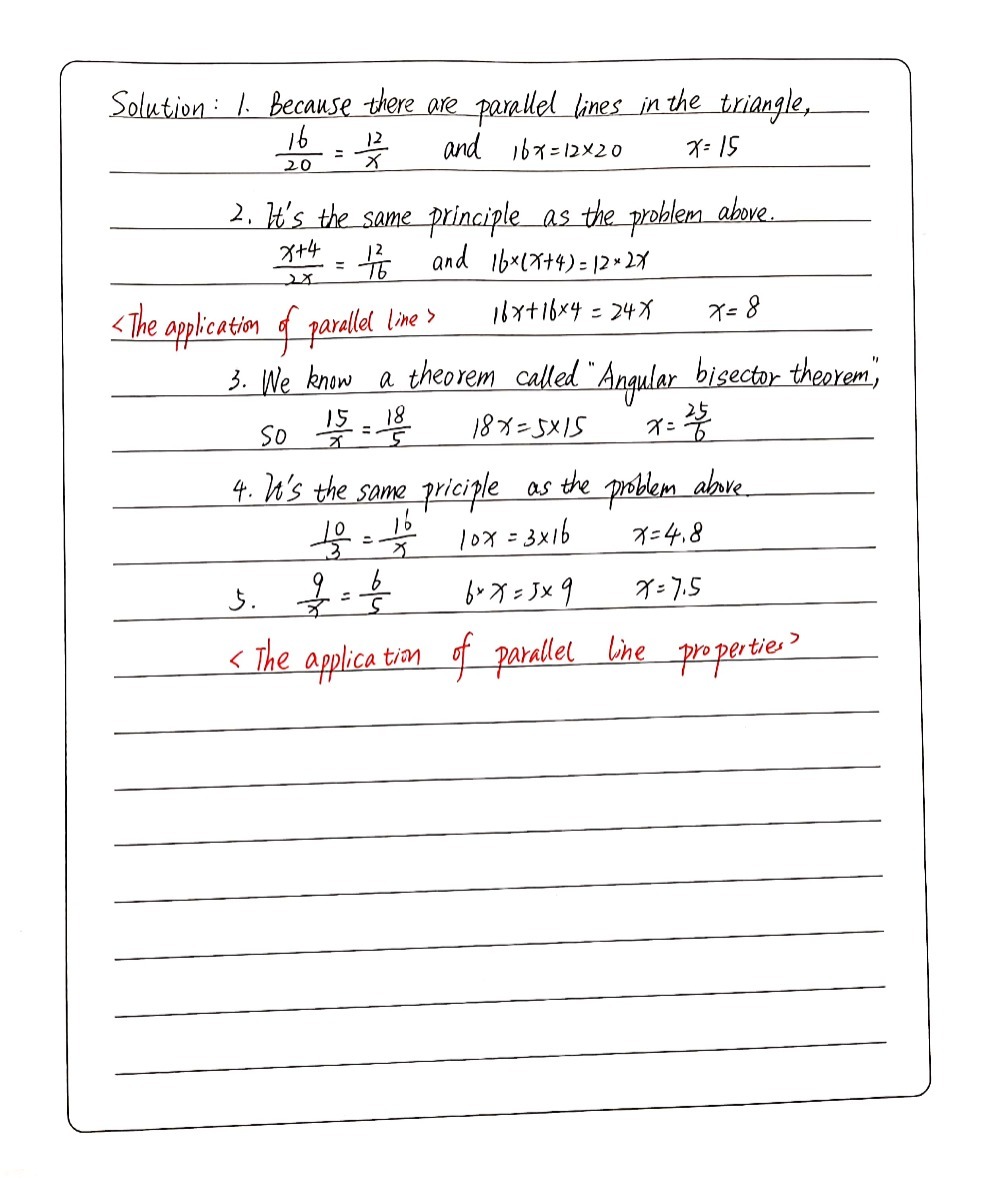 Solution: 1. Because there are parallel lines in the triangle,
16/20 = 12/x and 16x=12×20 x=15
2. It's the same principle as the problem above.
x+4/2x = 12/16 and 16×(x+4)=12×2x
<The application of parallel line> 16x+16×4=24x x=8
3. We know a theorem called "Angular bisector theorem",
so 15/x = 18/5 18x=5×15 x=25/6
4. It's the same priciple as the problem above.
10/3 = 16/x 10x=3×16 x=4.8
5. 9/x = 6/5 6×x=5×9 x=7.5
<The application of parallel line properties>